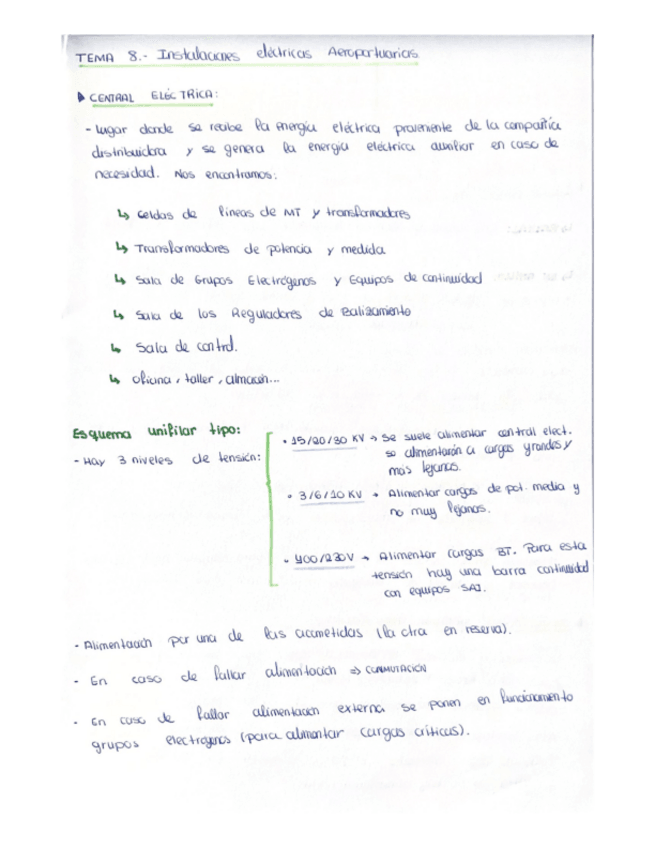 TEMA 8.- Instalaciones eléctricas Aeroportuarias
CENTRAL ELÉCTRICA:
- Lugar donde se recibe la energía eléctrica proveniente de la compañía
distribuidora y se genera la energía eléctrica auxiliar en caso de
necesidad. Nos encontramos:
↳ Celdas de líneas de MT y transformadores
↳ Transformadores de potencia y medida
↳ Sala de Grupos Electrógenos y Equipos de continuidad
↳ Sala de los Reguladores de Balizamiento
↳ Sala de control.
↳ Oficina, taller, almacén...
Esquema unifilar tipo:
- Hay 3 niveles de tensión:
• 15/20/30 KV → Se suele alimentar central elect.
so alimentarán a cargas grandes y
más lejanas.
• 3/6/10 KV → Alimentar cargas de pot. media y
no muy lejanas.
• 400/230V → Alimentar cargas BT. Para esta
tensión hay una barra continuidad
con equipos SAI.
- Alimentación por una de las acometidas (la otra en reserva).
- En caso de fallar alimentación ⇒ CONMUTACIÓN
- En caso de fallar alimentación externa se ponen en funcionamento
grupos electrogenos (para alimentar cargas críticas).